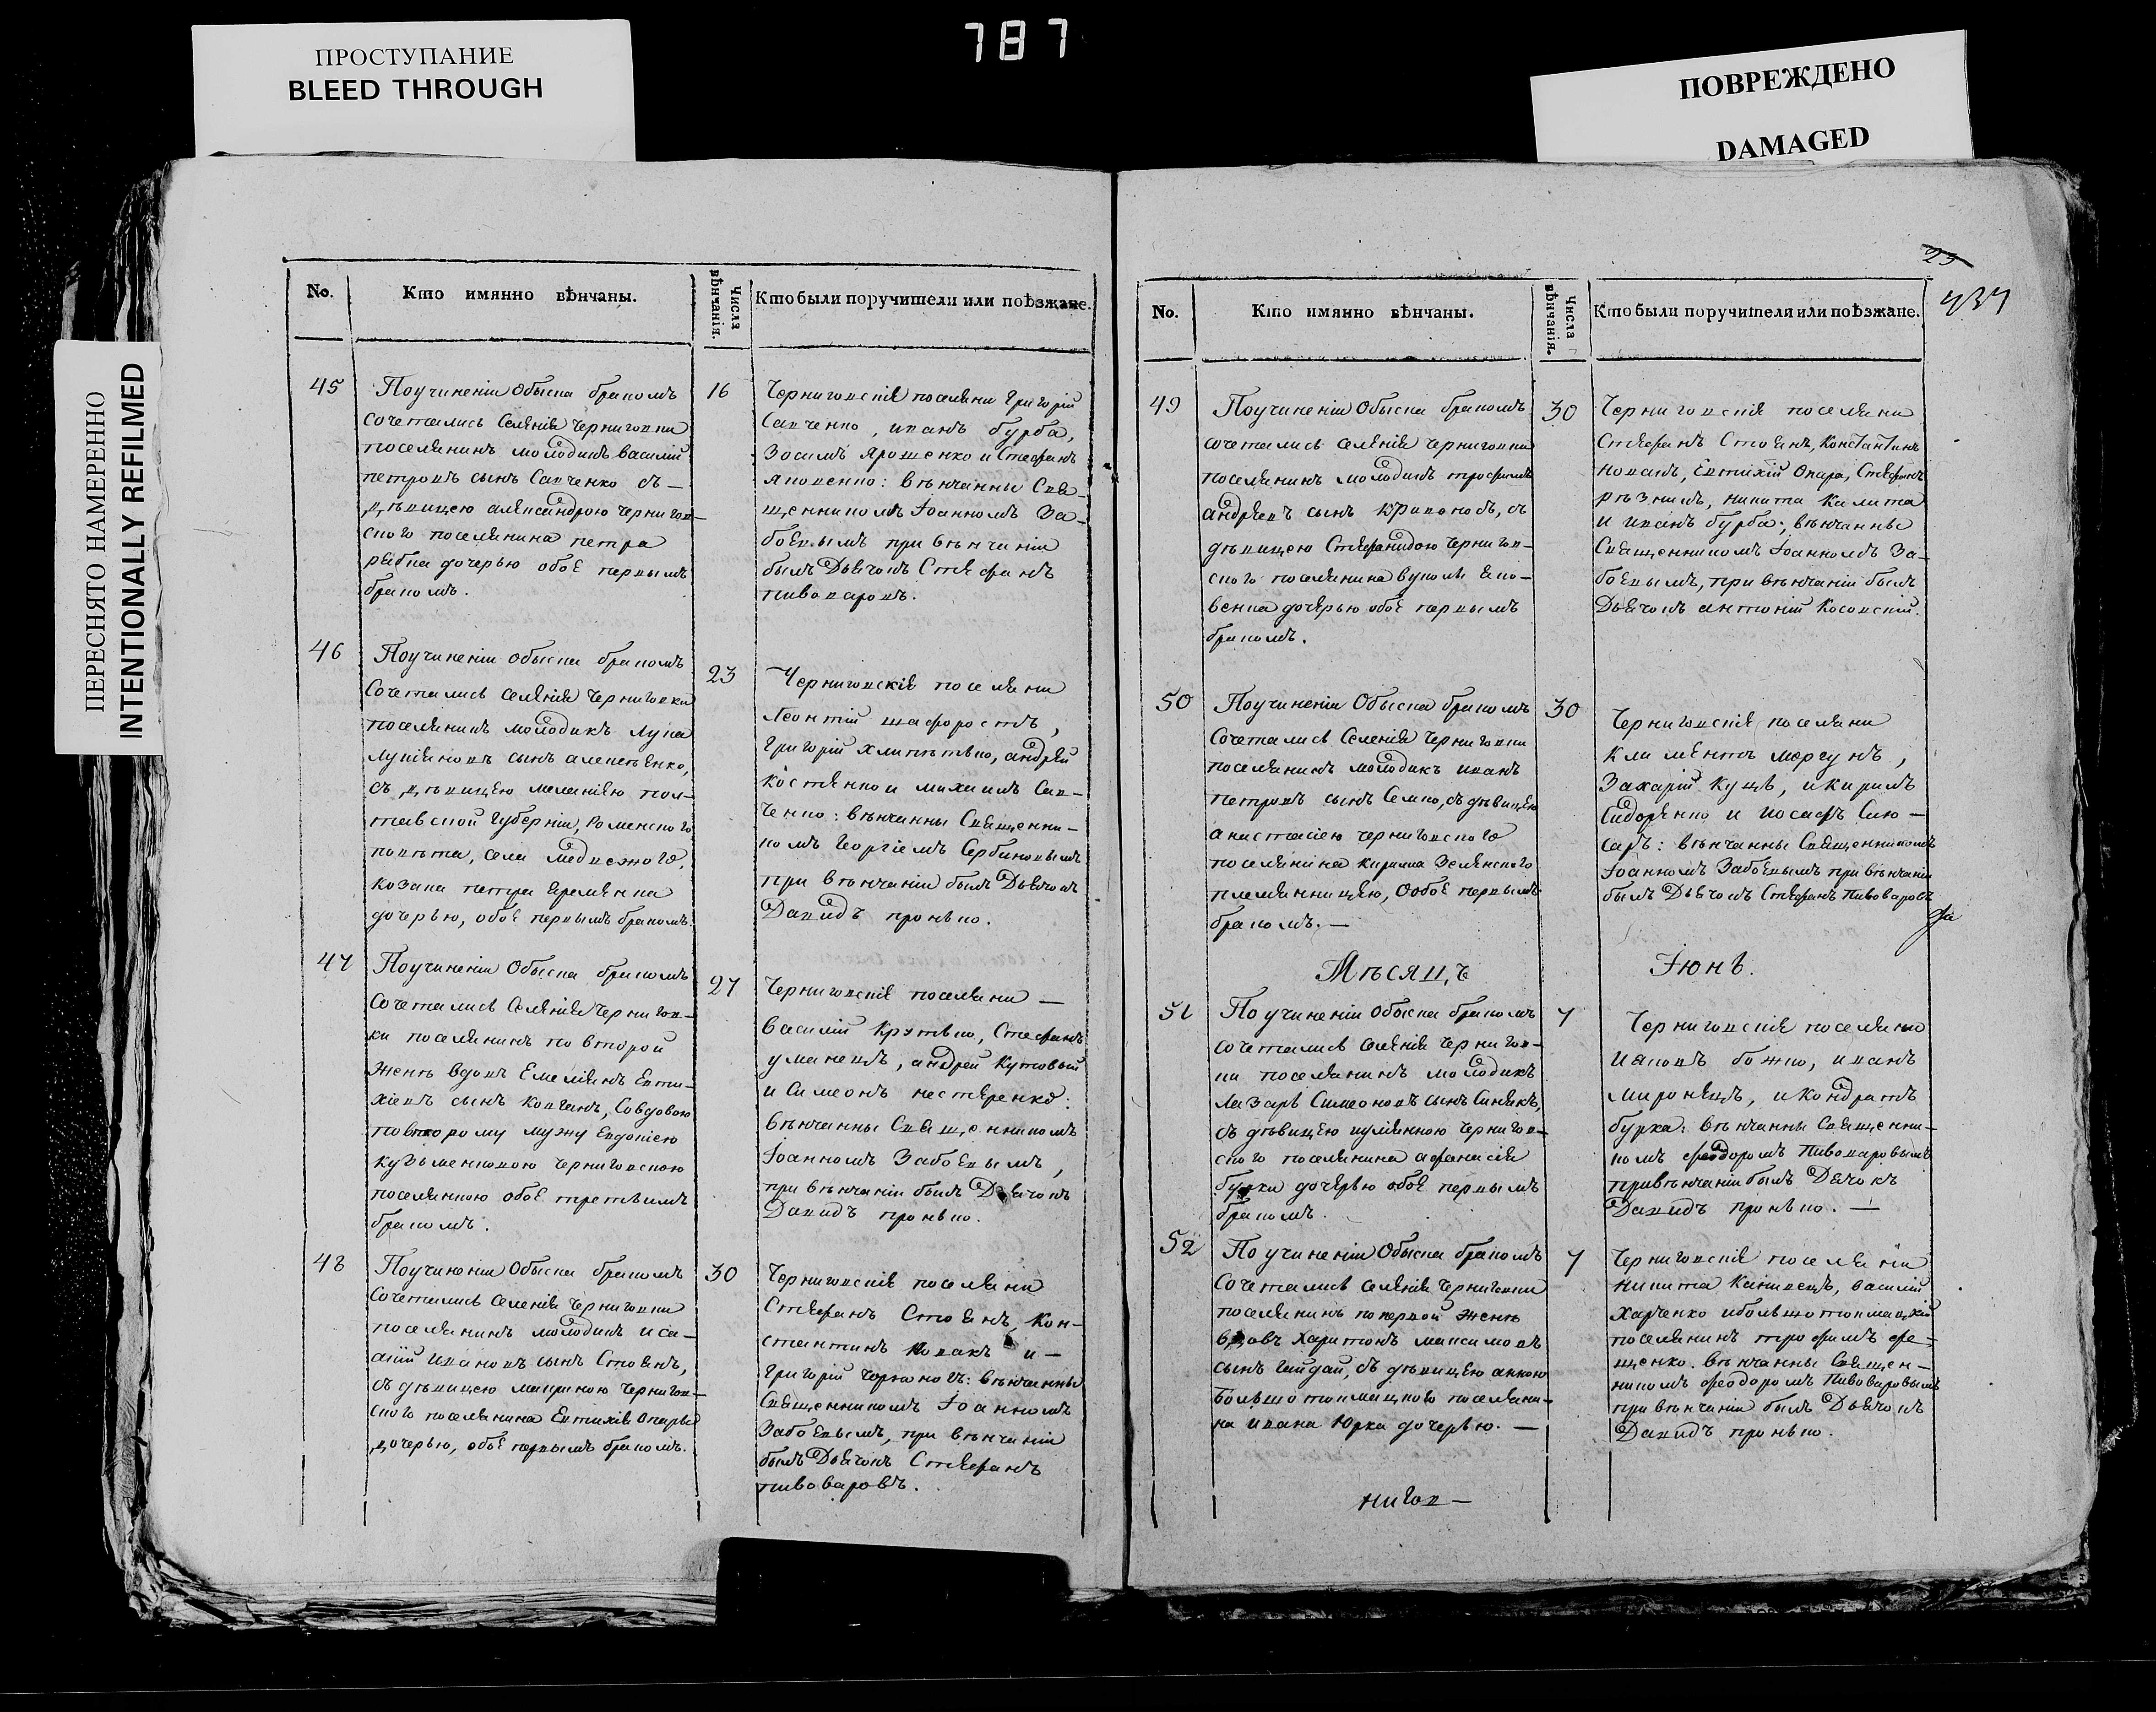 787
ПРОСТУПАНИЕ
BLEED THROUGH
ПОВРЕЖДЕНО
DAMAGED
ПЕРЕСНЯТО НАМЕРЕННО
INTENTIONALLY REFILMED
No.
Кто имянно вѣнчаны.
Числа вѣнчанія.
Кто были поручители или поѣзжане.
45
Поучиненіи Обыска бракомъ
сочетались Селенія Черниговки
поселянинъ молодикъ василій
петровъ сынъ Савченко съ —
дѣвицею александрою Чернигов—
ского поселянина петра
рыбка дочерью обое первымъ
бракомъ.
16
Черниговскіе поселяни григорій
Савченко, иванъ бурба,
Зосимъ Ярошенко и Стефанъ
яковенко: вѣнчанны Свя—
щенникомъ Іоанномъ За—
боевымъ при вѣнчаніи
былъ Дьячокъ Стефанъ
пивоваровъ.
46
Поучиненіи обыска бракомъ
Сочетались селенія Черниговки
поселянинъ молодикъ лука
лукіяновъ сынъ алексѣенко,
съ дѣвицею меланіею пол—
тавской губерніи, роменского
повѣта, села
козака петра еременка
дочерью, обое первымъ бракомъ.
23
Черниговскіе поселяни
леонтій шафоростъ,
григорій хлипѣтько, андрей
костенко и михаилъ Сав—
ченко: вѣнчанны Священни—
комъ георгіемъ Сербиновымъ
при вѣнчаніи былъ Дьячокъ
Давидъ пронько.
47
Поучиненіи Обыска бракомъ
сочетались Селенія Чернигов—
ки поселянинъ по второй
женѣ вдовъ Емеліянъ Евти—
хіевъ сынъ ковганъ, Совдовою
повторому мужу Евдокіею
кузьменковою черниговскою
поселянкою обое третьимъ
бракомъ.
27
Черниговскіе поселяни —
василій Крутько, Стефанъ
уманецъ, андрей Кутовый
и Симеонъ нестеренко:
вѣнчанны Священникомъ
Іоанномъ Забоевымъ,
при вѣнчаніи былъ Дьячокъ
Давидъ пронько.
48
Поучиненіи Обыска бракомъ
Сочетались Селенія Черниговки
поселянинъ молодикъ иса—
акій ивановъ сынъ Стоянъ,
съ дѣвицею мариною чернигов—
ского поселянина Евтихія опары
дочерью, обое первымъ бракомъ.
30
Черниговскіе поселяни
Стефанъ Стоянъ, Кон—
стантинъ новакъ и —
григорій Чорноногъ: вѣнчанны
Священникомъ Іоанномъ
Забоевымъ, при вѣнчаніи
былъ Дьячокъ Стефанъ
пивоваровъ.
23
No.
Кто имянно вѣнчаны.
Числа вѣнчанія.
Кто были поручители или поѣзжане.
49
Поучиненіи Обыска бракомъ
сочетались селенія Черниговки
поселянинъ молодикъ трофимъ
андреевъ сынъ кривоносъ, съ
дѣвицею Стефанидою Чернигов—
ского поселянина вукола яко—
венка дочерью обое первымъ
бракомъ.
30
Черниговскіе поселяни
Стефанъ Стоянъ, Константинъ
новакъ, Евтихій Опара, Стефанъ
рѣзникъ, никита калита
и иванъ бурба: вѣнчанны
Священникомъ Іоанномъ За—
боевымъ, при вѣнчаніи былъ
Дьячокъ антоній Косовскій.
50
Поучиненіи Обыска бракомъ
Сочетались Селенія Черниговки
поселянинъ молодикъ иванъ
петровъ сынъ Семко, съ дѣвицею
анистасіею черниговского
поселянина кирилла Зеленского
племянницею, Ообое первымъ
бракомъ. —
30
Черниговскіе поселяни
климентъ моргунъ,
Захарій куцъ, икирилъ
Сидоренко и иосафъ Слю—
сарь: вѣнчанны Священникомъ
Іоанномъ Забоевымъ при вѣнчаніи
былъ Дьячокъ Стефанъ Пивоваровъ
Мѣсяцъ
Іюнь.
51
Поучиненіи Обыска бракомъ
сочетались селенія Чернигов—
ки поселянинъ молодикъ
Лазарь Симеоновъ сынъ Синякъ,
съ дѣвицею иуліянною Чернигов—
ского поселянина афанасія
бурки дочерью обое первымъ
бракомъ.
7
Черниговскіе поселяни
иаковъ божко, иванъ
миронецъ, и кондратъ
бурка: вѣнчанны Священни—
комъ феодоромъ Пивоваровымъ
привѣнчаніи былъ Дячокъ
Давидъ пронько. —
52
Поучиненіи Обыска бракомъ
Сочетались селенія Черниговки
поселянинъ попервой женѣ
вдовъ Харитонъ максимовъ
сынъ гайдай, съ дѣвицею анною
большотокмацкого поселяни—
на ивана Юрка дочерью. —
7
Черниговскіе поселяни
никита Каневецъ, василій
Харченко ибольшотокмацкій
поселянинъ трофимъ фе—
щенко. вѣнчанны Священ—
никомъ феодоромъ Пивоваровымъ
при вѣнчаніи былъ Дьячокъ
Давидъ пронько.
нигов —